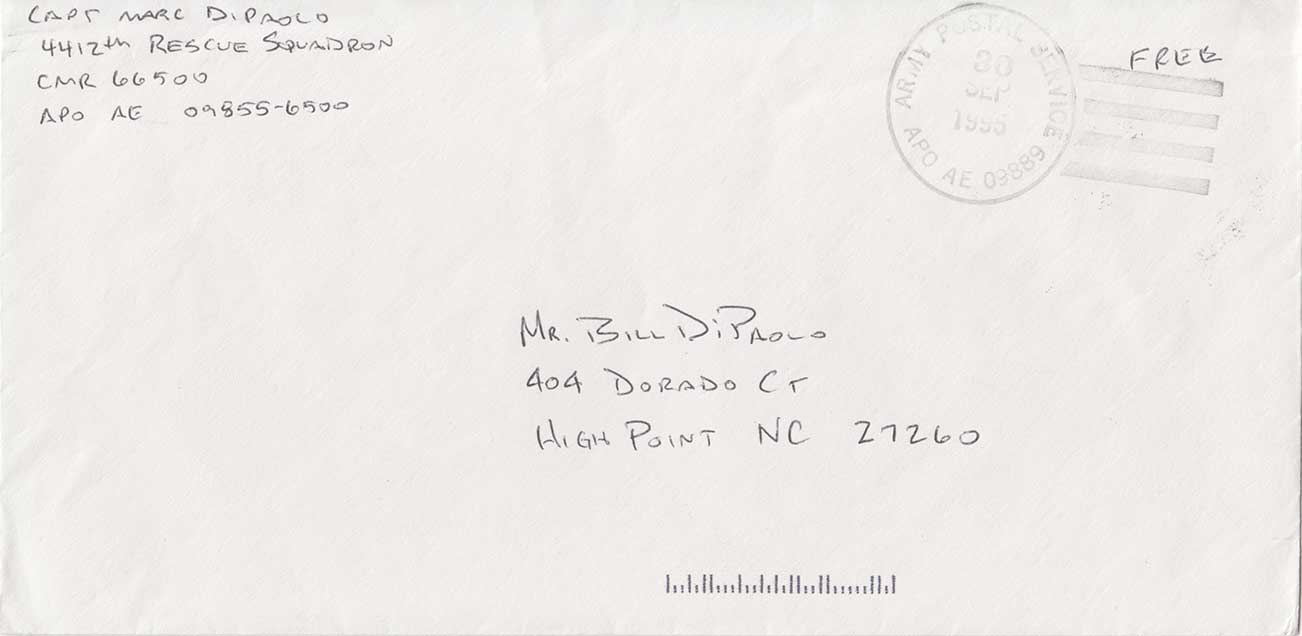 CAPT MARC DiPAOLO
4412th RESCUE SQUADRON
CMR 66500
APO AE 09855-6500
FREE
ARMY POSTAL SERVICE
30
SEP
1995
APO AE 09889
MR. BILL DiPAOLO
404 DORADO CT
HIGH POINT NC 27260